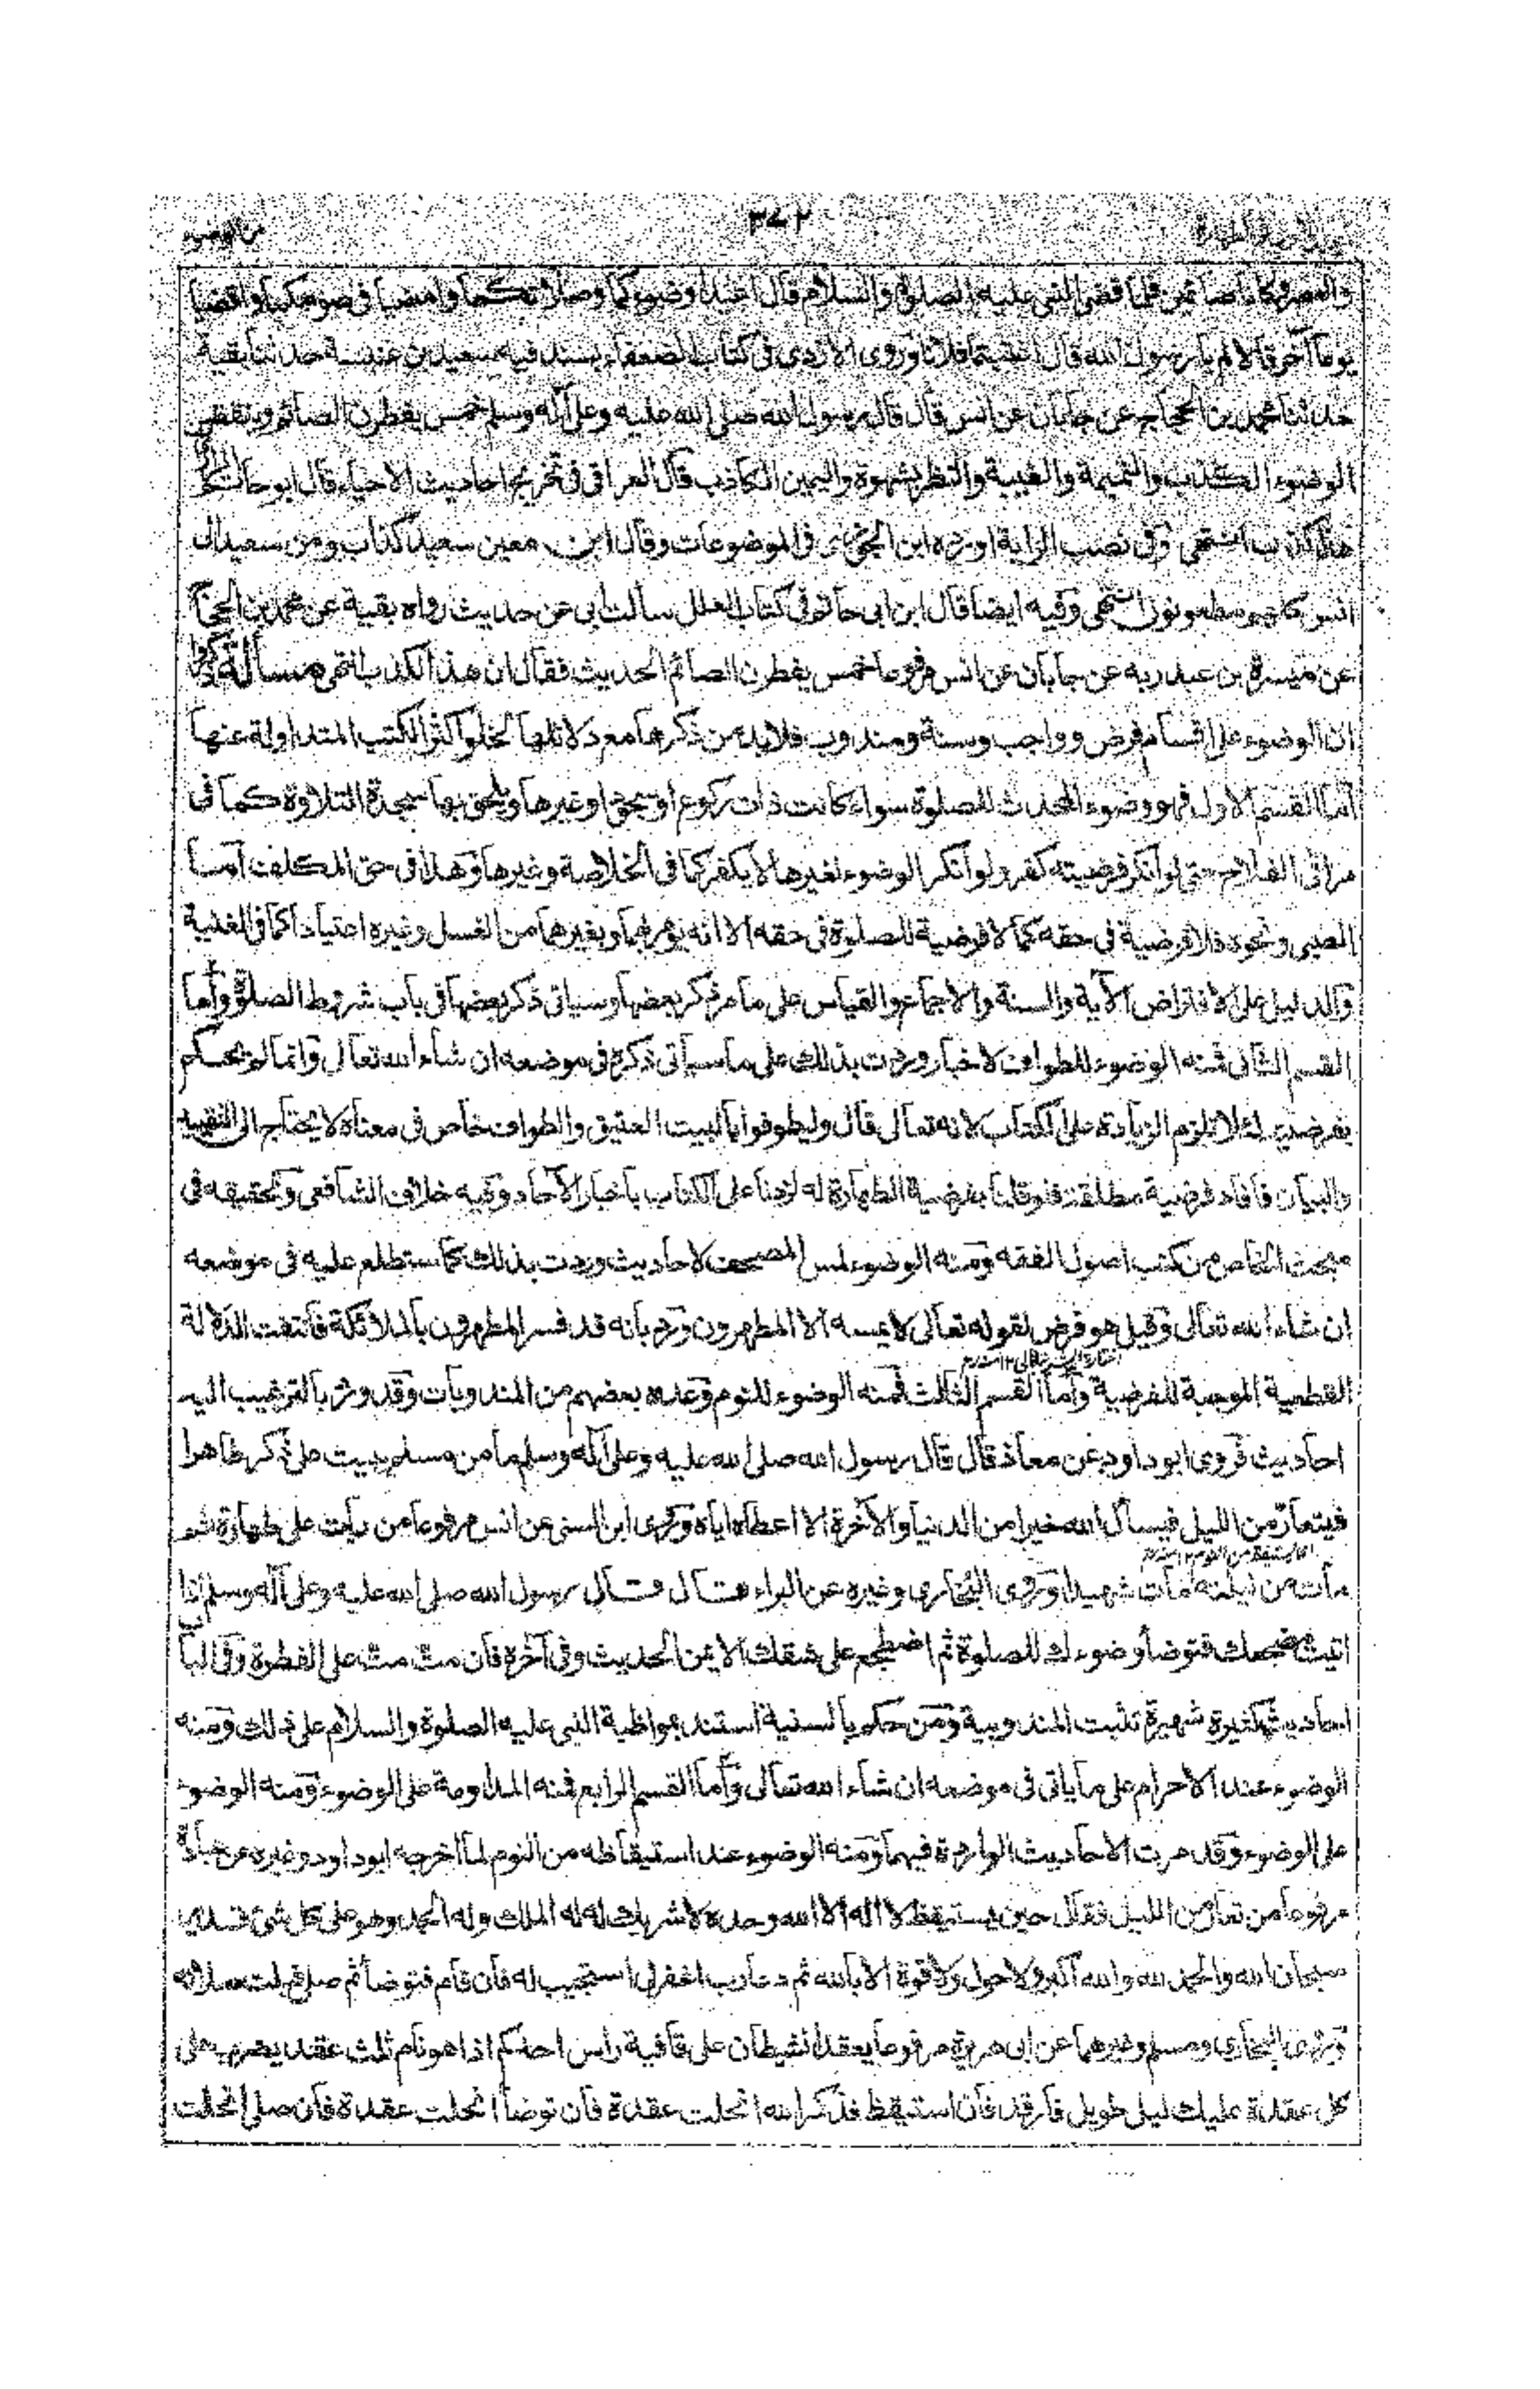 ٣٧٢
والعصر وكانا صائمين فلما قضى النبي عليه الصلوة والسلام قال اعيدا وضوءكما وصلاتكما وامضيا فى صومكما واقضيا
يوما آخر قالا لم يا رسول الله قال اغتبتما فلانا وروى الازدى فى كتاب الضعفاء بسند فيه سعيد بن عنبسة حدثنا بقية
حدثنا محمد بن الحجاج عن جابان عن انس قال قال رسول الله صلى الله عليه وعلى آله وسلم خمس يفطرن الصائم وينقضن
الوضوء الكذب والنميمة والغيبة والنظر بشهوة واليمين الكاذب قال العراقى فى تخريج احاديث الاحياء قال ابو حاتم
هذا كذب انتهى وفى نصب الراية اورده ابن الجوزى فى الموضوعات وقال ابن معين سعيد كذاب ومن سعيد الى
انس كلهم مطعونون انتهى وفيه ايضا قال ابن ابى حاتم فى كتاب العلل سألت ابى عن حديث رواه بقية عن محمد بن الحجاج
عن ميسرة بن عبد ربه عن جابان عن انس مرفوعا خمس يفطرن الصائم الحديث فقال ان هذا الكذب انتهى مسألة
ان الوضوء على اقسام فرض وواجب وسنة ومندوب فلابد من ذكرها مع دلائلها لخلو اكثر الكتب المتداولة عنها
اما القسم الاول فهو وضوء المحدث للصلوة سواء كانت ذات ركوع او سجود او غيرها ويلحق بها سجدة التلاوة كما فى
مراقى الفلاح حتى لو انكر فرضيته كفر ولو انكر الوضوء لغيرها لا يكفر كما فى الخلاصة وغيرها وهذا فى حق المكلف اما
الصبى ونحوه فلا فرضية فى حقه كما لا فرضية للصلوة فى حقه الا انه يؤمر بهما وبغيرهما من الغسل وغيره اعتيادا كما فى الغنية
والدليل على الافتراض الآية والسنة والاجماع والقياس على ما مر ذكر بعضها وسياتى ذكر بعضها فى باب شروط الصلوة واما
القسم الثانى فمنه الوضوء للطواف لاخبار وردت بذلك على ما سيأتى ذكره فى موضعه ان شاء الله تعالى وانما لم يحكم
بفرضيته لئلا يلزم الزيادة على الكتاب لانه تعالى قال وليطوفوا بالبيت العتيق والطواف خاص فى معناه لا يحتاج الى التقييد
والبيان فافاد فرضية مطلقة فلو قلنا بفرضية الطهارة له لزدنا على الكتاب باخبار الآحاد وفيه خلاف الشافعى وتحقيقه فى
مبحث الخاص من كتب اصول الفقه ومنه الوضوء لمس المصحف لاحاديث وردت بذلك كما ستطلع عليه فى موضعه
ان شاء الله تعالى وقيل هو فرض لقوله تعالى لا يمسه الا المطهرون ورد بانه قد فسر المطهرون بالملائكة فانتفت الدلالة
القطعية الموجبة للفرضية واما القسم الثالث فمنه الوضوء للنوم وعده بعضهم من المندوبات وقد ورد بالترغيب اليه
احاديث فروى ابو داود عن معاذ قال قال رسول الله صلى الله عليه وعلى آله وسلم ما من مسلم يبيت على ذكر طاهرا
فيتعار من الليل فيسأل الله خيرا من الدنيا والآخرة الا اعطاه اياه وروى ابن السنى عن انس مرفوعا من بات على طهارة ثم
اى استيقظ من النوم ١٢ منه
مات من ليلته مات شهيدا وروى البخارى وغيره عن البراء قال قال رسول الله صلى الله عليه وعلى آله وسلم اذا
اتيت مضجعك فتوضأ وضوءك للصلوة ثم اضطجع على شقك الايمن الحديث وفى آخره فان مت مت على الفطرة وفى الباب
احاديث كثيرة شهيرة تثبت المندوبية ومن حكم بالسنية استند بمواظبة النبى عليه الصلوة والسلام على ذلك ومنه
الوضوء عند الاحرام على ما ياتى فى موضعه ان شاء الله تعالى واما القسم الرابع فمنه المداومة على الوضوء ومنه الوضوء
على الوضوء وقد مرت الاحاديث الواردة فيهما ومنه الوضوء عند استيقاظه من النوم لما اخرجه ابو داود وغيره عن عبادة
مرفوعا من تعار من الليل فقال حين يستيقظ لا اله الا الله وحده لا شريك له له الملك وله الحمد وهو على كل شئ قدير
سبحان الله والحمد لله والله اكبر ولا حول ولا قوة الا بالله ثم دعا رب اغفر لى استجيب له فان قام فتوضأ ثم صلى قبلت صلاته
وروى البخارى ومسلم وغيرهما عن ابى هريرة مرفوعا يعقد الشيطان على قافية راس احدكم اذا هو نام ثلث عقد يضرب على
كل عقدة عليك ليل طويل فارقد فان استيقظ فذكر الله انحلت عقدة فان توضأ انحلت عقدة فان صلى انحلت